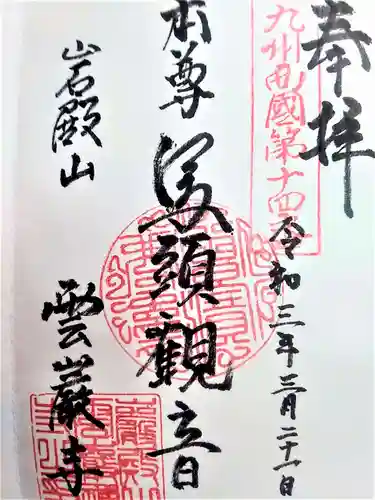 奉拝
九州西國第十四番
令和三年三月二十一日
本尊
馬頭観音
岩殿山
雲巌寺